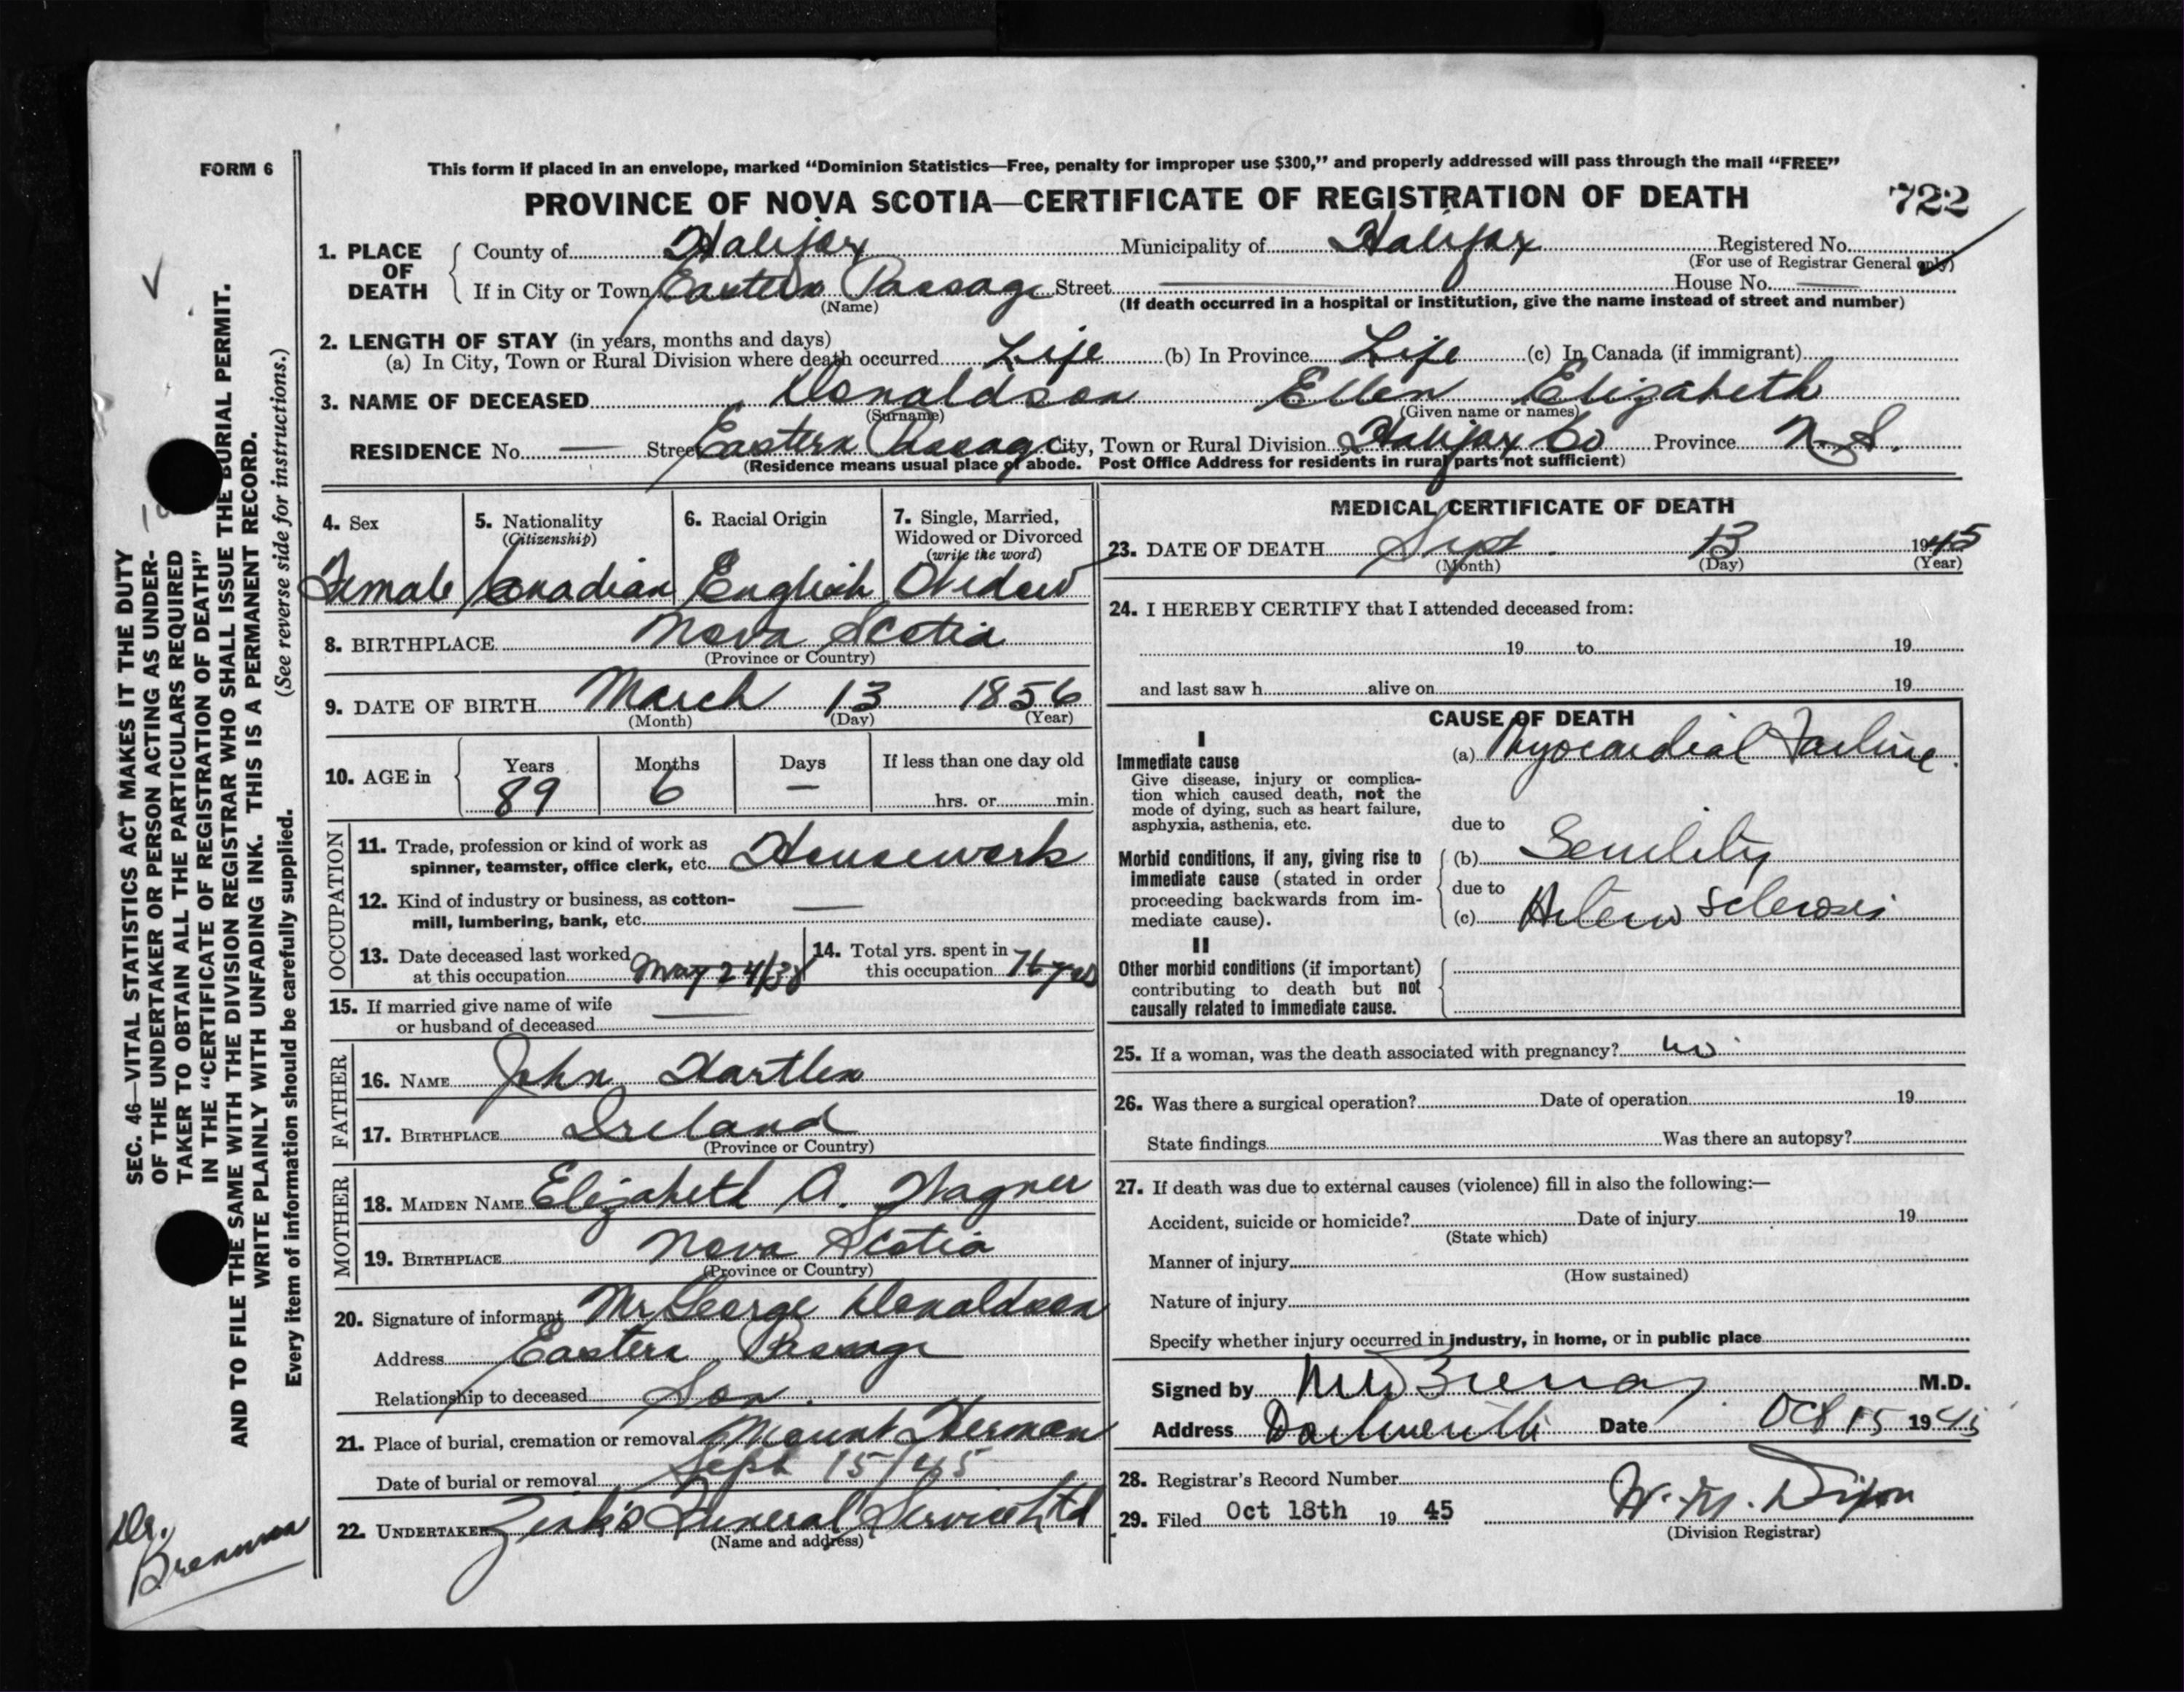 FORM 6
This form if placed in an envelope, marked "Dominion Statistics—Free, penalty for improper use $300," and properly addressed will pass through the mail "FREE"
PROVINCE OF NOVA SCOTIA—CERTIFICATE OF REGISTRATION OF DEATH 722
1. PLACE OF DEATH County of Halifax Municipality of Halifax Registered No.
(For use of Registrar General only)
If in City or Town Eastern Passage Street — House No. —
(Name) (If death occurred in a hospital or institution, give the name instead of street and number)
2. LENGTH OF STAY (in years, months and days)
(a) In City, Town or Rural Division where death occurred Life (b) In Province Life (c) In Canada (if immigrant)
3. NAME OF DECEASED Donaldson Ellen Elizabeth
(Surname) (Given name or names)
RESIDENCE No. — Street Eastern Passage City, Town or Rural Division Halifax Co Province N.S.
(Residence means usual place of abode. Post Office Address for residents in rural parts not sufficient)
4. Sex Female
5. Nationality (Citizenship) Canadian
6. Racial Origin English
7. Single, Married, Widowed or Divorced (write the word) Widow
8. BIRTHPLACE Nova Scotia
(Province or Country)
9. DATE OF BIRTH March 13 1856
(Month) (Day) (Year)
10. AGE in Years 89 Months 6 Days — If less than one day old
hrs. or min.
OCCUPATION
11. Trade, profession or kind of work as
spinner, teamster, office clerk, etc. Housework
12. Kind of industry or business, as cotton-
mill, lumbering, bank, etc. —
13. Date deceased last worked
at this occupation May 24/38
14. Total yrs. spent in
this occupation 76 yrs
15. If married give name of wife
or husband of deceased —
FATHER
16. NAME John Hartlen
17. BIRTHPLACE Ireland
(Province or Country)
MOTHER
18. MAIDEN NAME Elizabeth A. Wagner
19. BIRTHPLACE Nova Scotia
(Province or Country)
20. Signature of informant Mr George Donaldson
Address Eastern Passage
Relationship to deceased Son.
21. Place of burial, cremation or removal Mount Herman
Date of burial or removal Sept 15/45
22. UNDERTAKER Zink's Funeral Service Ltd
(Name and address)
MEDICAL CERTIFICATE OF DEATH
23. DATE OF DEATH Sept. 13 1945
(Month) (Day) (Year)
24. I HEREBY CERTIFY that I attended deceased from:
19 to 19
and last saw h alive on 19
CAUSE OF DEATH
I
Immediate cause
Give disease, injury or complica-
tion which caused death, not the
mode of dying, such as heart failure,
asphyxia, asthenia, etc.
(a) Myocardial Failure.
due to
Morbid conditions, if any, giving rise to
immediate cause (stated in order
proceeding backwards from im-
mediate cause).
(b) Senility
due to
(c) Arterio Sclerosis
II
Other morbid conditions (if important)
contributing to death but not
causally related to immediate cause.
25. If a woman, was the death associated with pregnancy? no
26. Was there a surgical operation? Date of operation 19
State findings Was there an autopsy?
27. If death was due to external causes (violence) fill in also the following:—
Accident, suicide or homicide? Date of injury 19
(State which)
Manner of injury
(How sustained)
Nature of injury
Specify whether injury occurred in industry, in home, or in public place
Signed by M.D.
Address Dartmouth Date Oct 15 1945
28. Registrar's Record Number
29. Filed Oct 18th 19 45 W. M. Dixon
(Division Registrar)
SEC. 46—VITAL STATISTICS ACT MAKES IT THE DUTY
OF THE UNDERTAKER OR PERSON ACTING AS UNDER-
TAKER TO OBTAIN ALL THE PARTICULARS REQUIRED
IN THE "CERTIFICATE OF REGISTRATION OF DEATH"
AND TO FILE THE SAME WITH THE DIVISION REGISTRAR WHO SHALL ISSUE THE BURIAL PERMIT.
WRITE PLAINLY WITH UNFADING INK. THIS IS A PERMANENT RECORD.
(See reverse side for instructions.)
Every item of information should be carefully supplied.
Dr.
Brennan